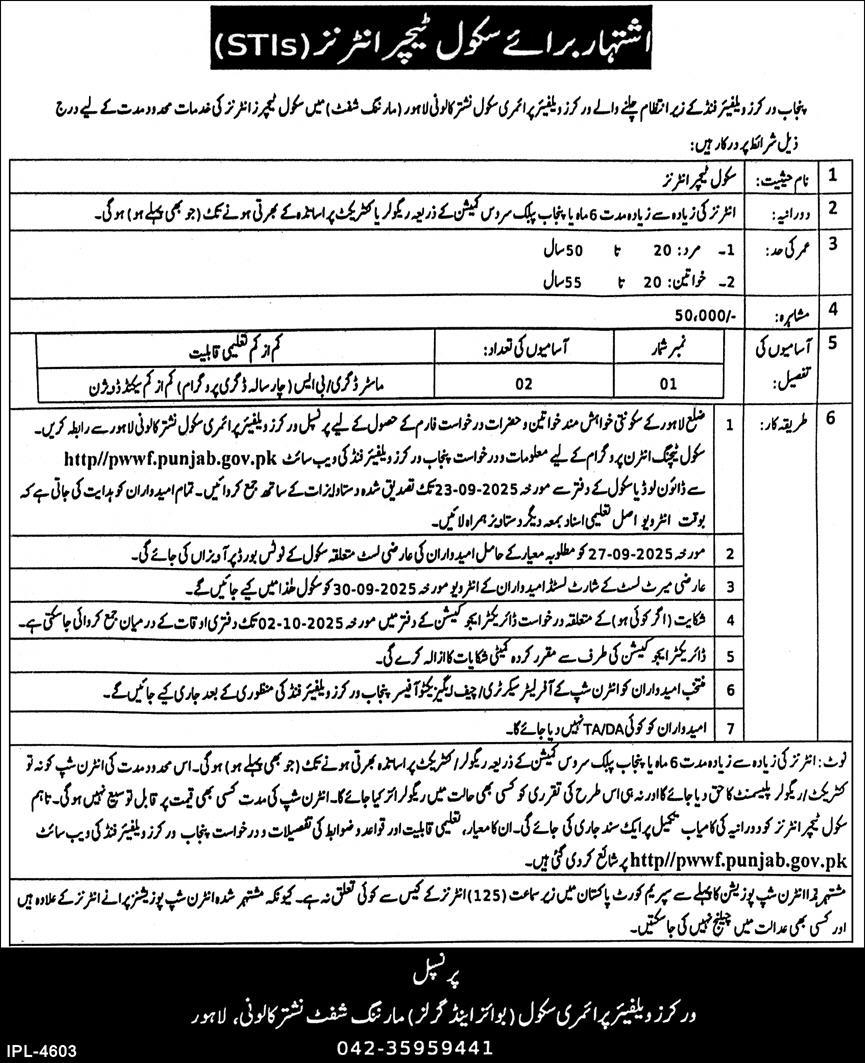 اشتہار برائے سکول ٹیچر انٹرنز (STIs)
پنجاب ورکرز ویلفیئر فنڈ کے زیر انتظام چلنے والے ورکرز ویلفیئر پرائمری سکول نشتر کالونی لاہور (مارننگ شفٹ) میں سکول ٹیچرز انٹرنز کی خدمات محدود مدت کے لیے درج
ذیل شرائط پر درکار ہیں:
1 نام حیثیت: سکول ٹیچر انٹرنز
2 دورانیہ: انٹرنز کی زیادہ سے زیادہ مدت 6 ماہ یا پنجاب پبلک سروس کمیشن کے ذریعہ ریگولر یا کنٹریکٹ پر اساتذہ کے بھرتی ہونے تک (جو بھی پہلے ہو) ہوگی۔
3 عمر کی حد: 1۔ مرد: 20 تا 50 سال
2۔ خواتین: 20 تا 55 سال
4 مشاہرہ: 50,000/-
5 آسامیوں کی تفصیل: نمبر شمار آسامیوں کی تعداد: کم از کم تعلیمی قابلیت
01 02 ماسٹر ڈگری/بی ایس (چار سالہ ڈگری پروگرام) کم از کم سیکنڈ ڈویژن
6 طریقہ کار: 1 ضلع لاہور کے سکونتی خواہش مند خواتین و حضرات درخواست فارم کے حصول کے لیے پرنسپل ورکرز ویلفیئر پرائمری سکول نشتر کالونی لاہور سے رابطہ کریں۔
سکول ٹیچنگ انٹرن پروگرام کے لیے معلومات و درخواست پنجاب ورکرز ویلفیئر فنڈ کی ویب سائٹ http//pwwf.punjab.gov.pk
سے ڈاؤن لوڈ یا سکول کے دفتر سے مورخہ 23-09-2025 تک تصدیق شدہ دستاویزات کے ساتھ جمع کروائیں۔ تمام امیدواران کو ہدایت کی جاتی ہے کہ
بوقت انٹرویو اصل تعلیمی اسناد بمعہ دیگر دستاویز ہمراہ لائیں۔
2 مورخہ 27-09-2025 کو مطلوبہ معیار کے حامل امیدواران کی عارضی لسٹ متعلقہ سکول کے نوٹس بورڈ پر آویزاں کی جائے گی۔
3 عارضی میرٹ لسٹ کے شارٹ لسٹڈ امیدواران کے انٹرویو مورخہ 30-09-2025 کو سکول ھٰذا میں کیے جائیں گے۔
4 شکایت (اگر کوئی ہو) کے متعلقہ درخواست ڈائریکٹر ایجوکیشن کے دفتر میں مورخہ 02-10-2025 تک دفتری اوقات کے درمیان جمع کروائی جاسکتی ہے۔
5 ڈائریکٹر ایجوکیشن کی طرف سے مقرر کردہ کمیٹی شکایات کا ازالہ کرے گی۔
6 منتخب امیدواران کو انٹرن شپ کے آفر لیٹر سیکرٹری/چیف ایگزیکٹو آفیسر پنجاب ورکرز ویلفیئر فنڈ کی منظوری کے بعد جاری کیے جائیں گے۔
7 امیدواران کو کوئی TA/DA نہیں دیا جائے گا۔
نوٹ: انٹرنز کی زیادہ سے زیادہ مدت 6 ماہ یا پنجاب پبلک سروس کمیشن کے ذریعہ ریگولر/کنٹریکٹ پر اساتذہ بھرتی ہونے تک (جو بھی پہلے ہو) ہوگی۔ اس محدود مدت کی انٹرن شپ کو نہ تو
کنٹریکٹ/ریگولر پلیسمنٹ کا حق دیا جائے گا اور نہ ہی اس طرح کی تقرری کو کسی بھی حالت میں ریگولرائز کیا جائے گا۔ انٹرن شپ کی مدت کسی بھی قیمت پر قابل توسیع نہیں ہوگی۔ تاہم
سکول ٹیچر انٹرنز کو دورانیہ کی کامیاب تکمیل پر ایک سند جاری کی جائے گی۔ ان کا معیار، تعلیمی قابلیت اور قواعد و ضوابط کی تفصیلات و درخواست پنجاب ورکرز ویلفیئر فنڈ کی ویب سائٹ
http//pwwf.punjab.gov.pk پر شائع کر دی گئی ہیں۔
مشتہر ہذا انٹرن شپ پوزیشن کا پہلے سے سپریم کورٹ پاکستان میں زیر سماعت (125) انٹرنز کے کیس سے کوئی تعلق نہ ہے۔ کیونکہ مشتہر شدہ انٹرن شپ پوزیشنز پرانے انٹرنز کے علاوہ ہیں
اور کسی بھی عدالت میں چیلنج نہیں کی جاسکتیں۔
پرنسپل
ورکرز ویلفیئر پرائمری سکول (بوائز اینڈ گرلز) مارننگ شفٹ نشتر کالونی، لاہور
042-35959441
IPL-4603